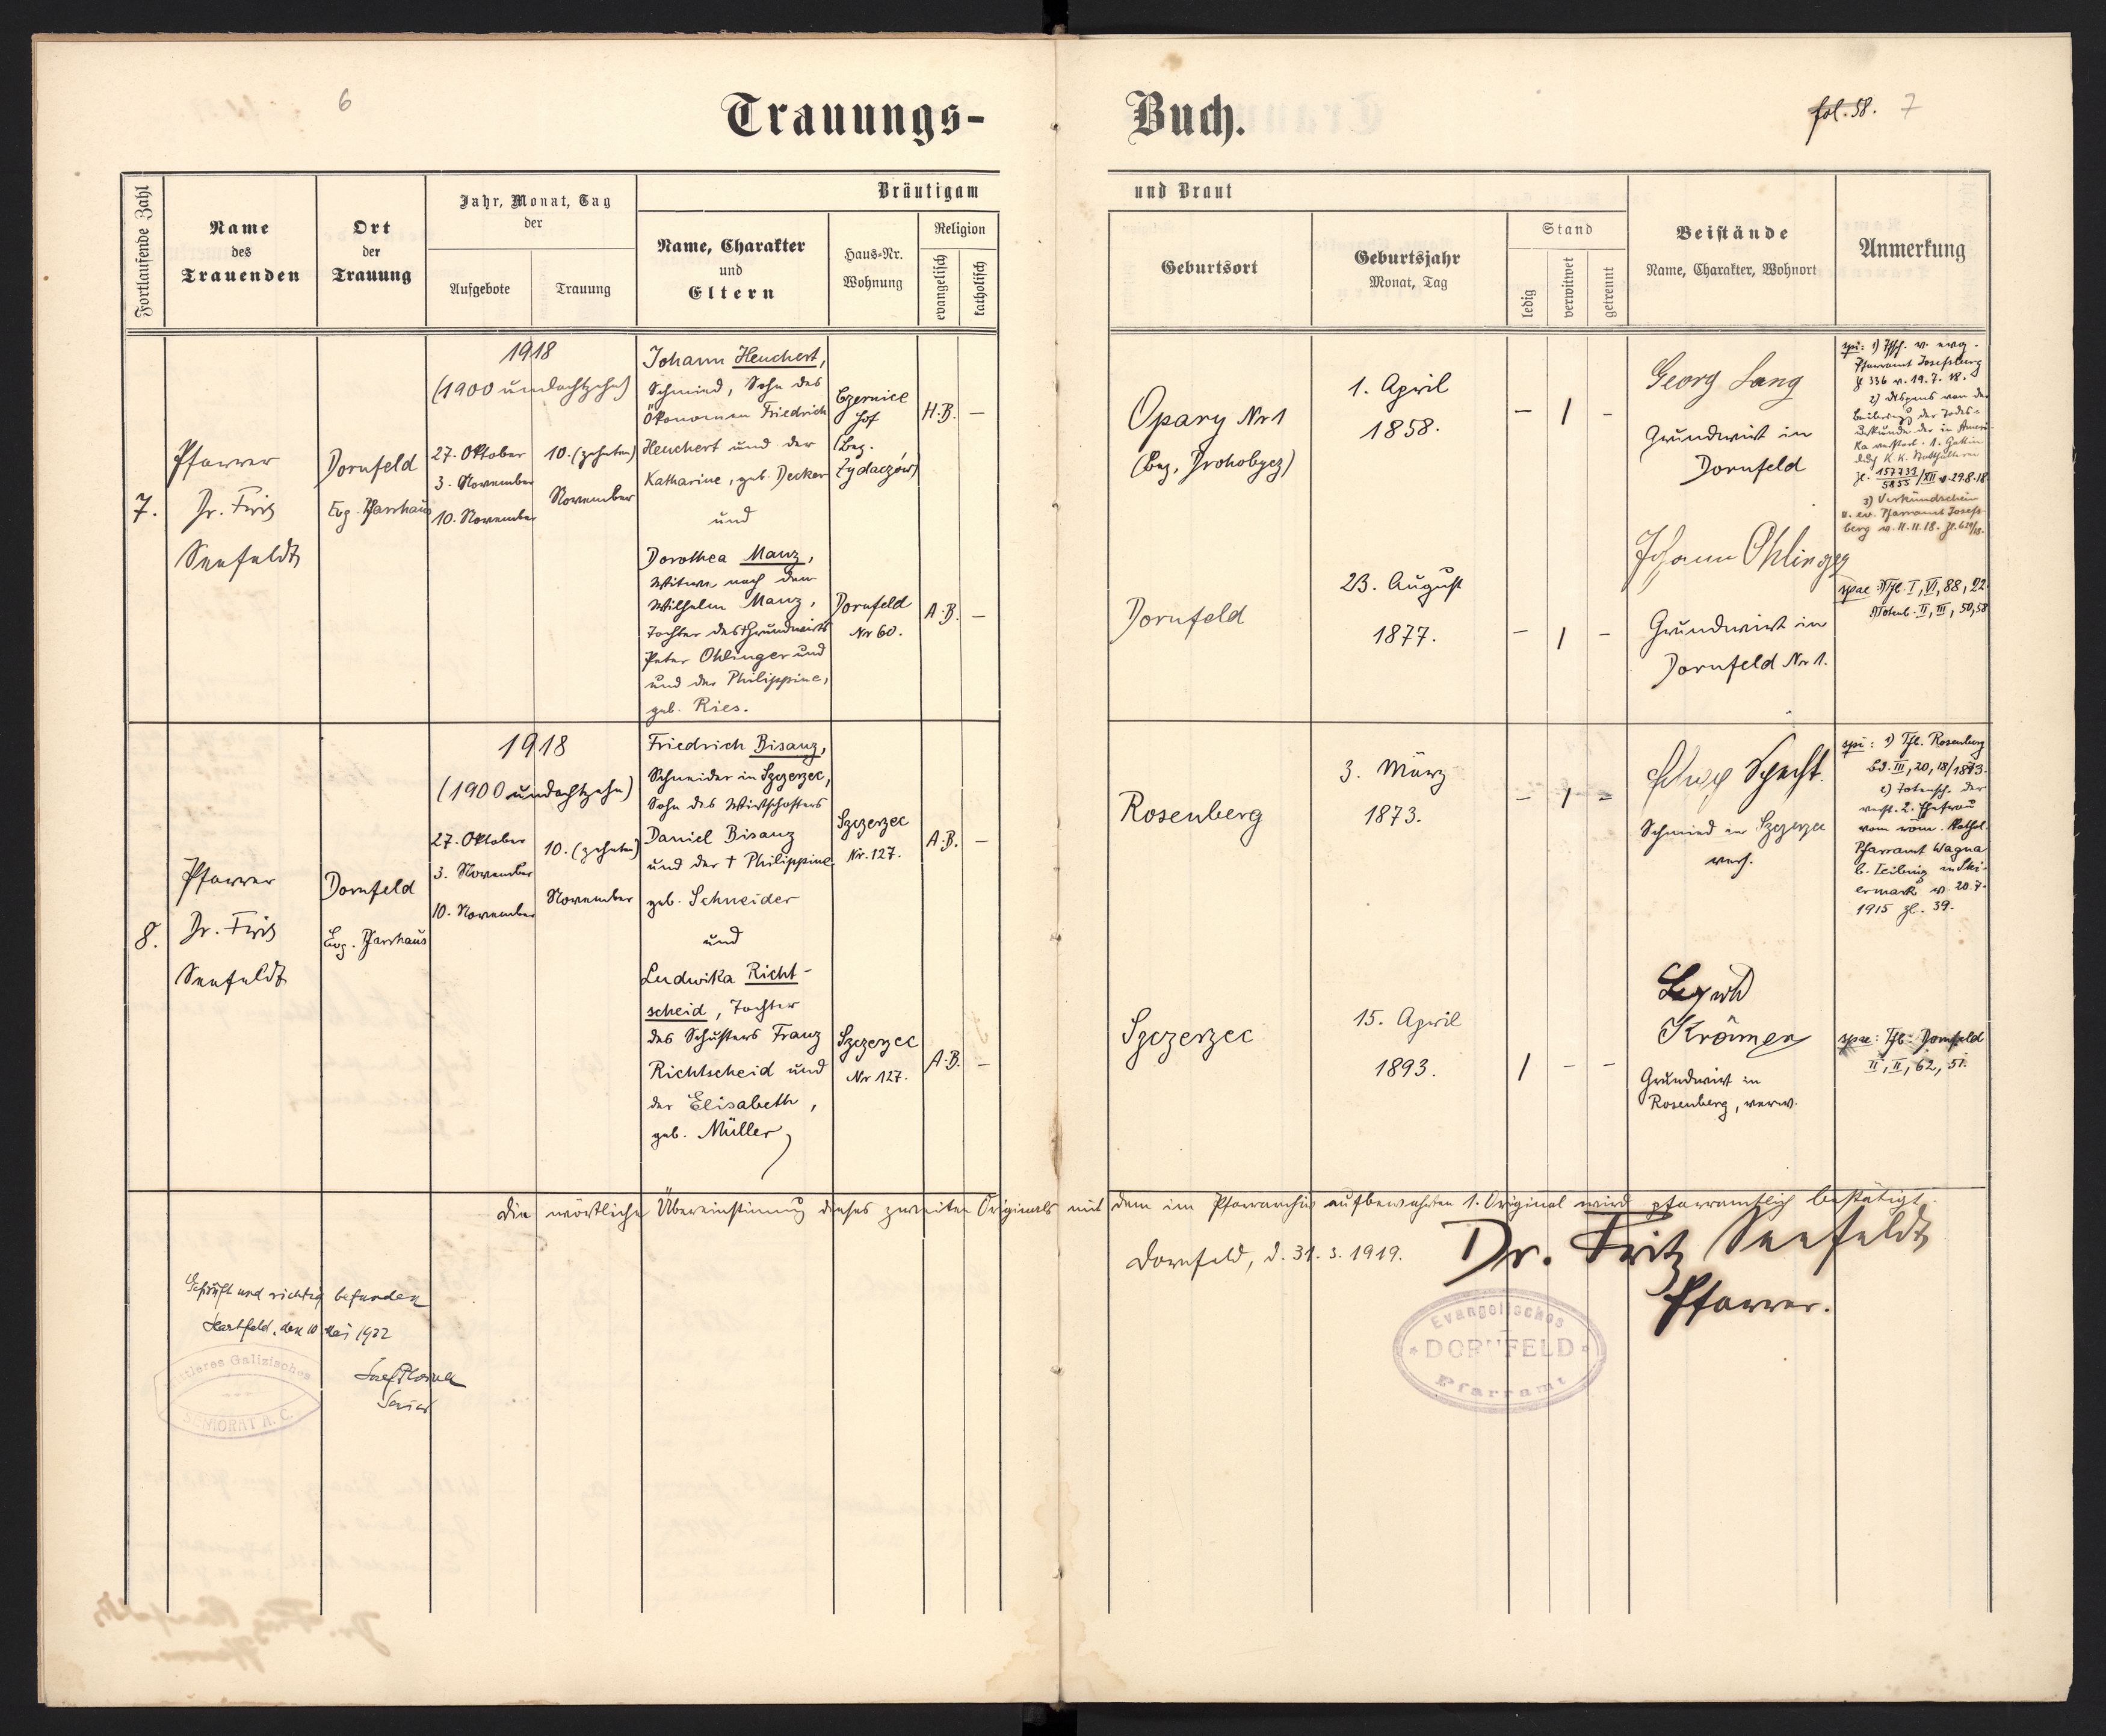 6
Trauungs-
Buch.
fol. 58. 7
Fortlaufende Zahl
Name
des
Trauenden
Ort
der
Trauung
Jahr, Monat, Tag
der
Aufgebote
Trauung
Bräutigam
Name, Charakter
und
Eltern
Haus-Nr.
Wohnung
Religion
evangelisch
katholisch
und Braut
Geburtsort
Geburtsjahr
Monat, Tag
Stand
ledig
verwitwet
getrennt
Beistände
Name, Charakter, Wohnort
Anmerkung
7.
Pfarrer
Dr. Fritz
Seefeldt
Dornfeld
Evg. Pfarrhaus
1918
(1900 undachtzehn)
27. Oktober
3. November
10. November
10. (zehnten)
November
Johann Heuchert,
Schmied, Sohn des
Ökonomen Friedrich
Heuchert und der
Katharine, geb. Decker
und
Dorothea Manz,
Witwe nach dem
Wilhelm Manz,
Tochter des † Grundwirts
Peter Ohlinger und
und der Philippine,
geb. Ries.
Czernice
Hof
(Bez.
Żydaczów)
H.B. —
Dornfeld
Nr 60.
A.B. —
Opary Nr 1
(Bez. Drohobycz)
1. April
1858.
— 1 –
Dornfeld
23. August
1877.
– 1 –
Georg Lang
Grundwirt in
Dornfeld
Johann Ohlinger
Grundwirt in
Dornfeld Nr 1.
spi: 1) Tfsch. v. evg.
Pfarramt Josefsberg
Zl 336 v. 19.7.18.
2) Dispens von der
Beibringg der Todes-
urkunde der in Ameri-
ka verstorb. 1. Gattin
durch K.K. Statthalterei
Zl. 157731/5855/XII v. 29.8.18
3) Verkündschein
v. ev. Pfarramt Josefs-
berg v. 11.11.18. Zl. 621/18.
spae: 1) Tfb. I, VI, 88, 22.
2) Totenb. II, III, 50, 58
8.
Pfarrer
Dr. Fritz
Seefeldt
Dornfeld
Evg. Pfarrhaus
1918
(1900 undachtzehn)
27. Oktober
3. November
10. November
10. (zehnten)
November
Friedrich Bisanz,
Schneider in Szczerzec,
Sohn des Wirtschafters
Daniel Bisanz
und der † Philippine
geb. Schneider
und
Ludwika Richt-
scheid, Tochter
des Schusters Franz
Richtscheid und
der Elisabeth,
geb. Müller
Szczerzec
Nr. 127.
A.B. —
Szczerzec
Nr 127.
A.B. —
Rosenberg
3. März
1873.
– 1 –
Szczerzec
15. April
1893.
1 – –
Specht.
Schmied in Szczerzec
verh.
Krämer
Grundwirt in
Rosenberg, verw.
spi: 1) Tfb. Rosenberg
Bd. III, 20, 18/1873.
2) Totensch. der
verst. 2. Ehefrau
vom röm. kathol.
Pfarramt Wagna
b. Leibnig in Stei-
ermark v. 20.7.
1915 Zl. 39.
spae: Tfb. Dornfeld
II, II, 62, 51.
Die wörtliche Übereinstimmung dieses zweiten Originals mit dem im Pfarrarchiv aufbewahrten 1. Original wird pfarramtlich bestätigt.
Dornfeld, d. 31. 3. 1919.
Dr. Fritz Seefeldt
Pfarrer.
Evangelisches
DORNFELD
Pfarramt
Geprüft und richtig befunden
Hartfeld, den 10 Mai 1922
Senior
Mittleres Galizisches
SENIORAT A. C.